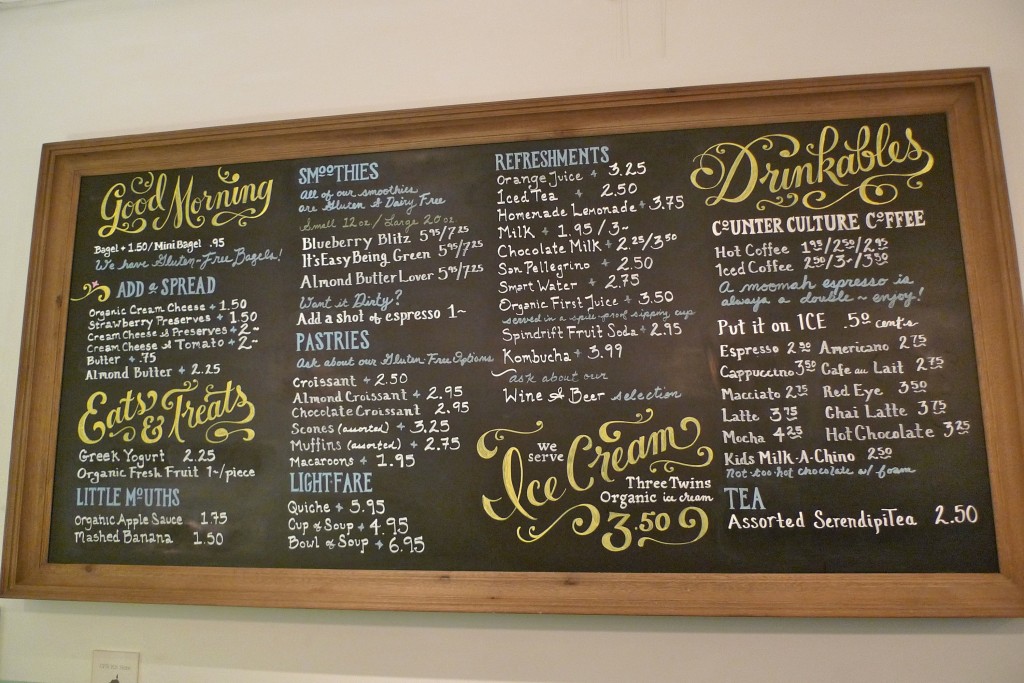 Good Morning
Bagel + 1.50/Mini Bagel .95
We have Gluten-Free Bagels!
ADD a SPREAD
Organic Cream Cheese + 1.50
Strawberry Preserves + 1.50
Cream Cheese & Preserves + 2~
Cream Cheese & Tomato + 2~
Butter + .75
Almond Butter + 2.25
Eats & Treats
Greek Yogurt 2.25
Organic Fresh Fruit 1~/piece
LITTLE MOUTHS
Organic Apple Sauce 1.75
Mashed Banana 1.50
SMOOTHIES
All of our smoothies
are Gluten & Dairy Free
Small 12oz / Large 20oz
Blueberry Blitz 5.95/7.25
It's Easy Being Green 5.95/7.25
Almond Butter Lover 5.95/7.25
Want it Dirty?
Add a shot of espresso 1~
PASTRIES
Ask about our Gluten-Free Options
Croissant + 2.50
Almond Croissant + 2.95
Chocolate Croissant 2.95
Scones (assorted) + 3.25
Muffins (assorted) + 2.75
Macaroons + 1.95
LIGHT-FARE
Quiche + 5.95
Cup of Soup + 4.95
Bowl of Soup + 6.95
REFRESHMENTS
Orange Juice + 3.25
Iced Tea + 2.50
Homemade Lemonade + 3.75
Milk + 1.95/3~
Chocolate Milk + 2.25/3.50
San Pellegrino + 2.50
Smart Water + 2.75
Organic First Juice + 3.50
served in a spill-proof sipping cup
Spindrift Fruit Soda + 2.95
Kombucha + 3.99
ask about our
Wine & Beer selection
we
serve
Ice Cream
Three Twins
Organic ice cream
3.50
Drinkables
COUNTER CULTURE COFFEE
Hot Coffee 1.95/2.50/2.95
Iced Coffee 2.50/3~/3.50
A moomah espresso is
always a double ~ enjoy!
Put it on ICE .50 cents
Espresso 2.50 Americano 2.75
Cappuccino 3.50 Cafe au Lait 2.75
Macciato 2.75 Red Eye 3.50
Latte 3.75 Chai Latte 3.75
Mocha 4.25 Hot Chocolate 3.25
Kids Milk-A-Chino 2.50
Not-too-hot chocolate w/ foam
TEA
Assorted SerendipiTea 2.50